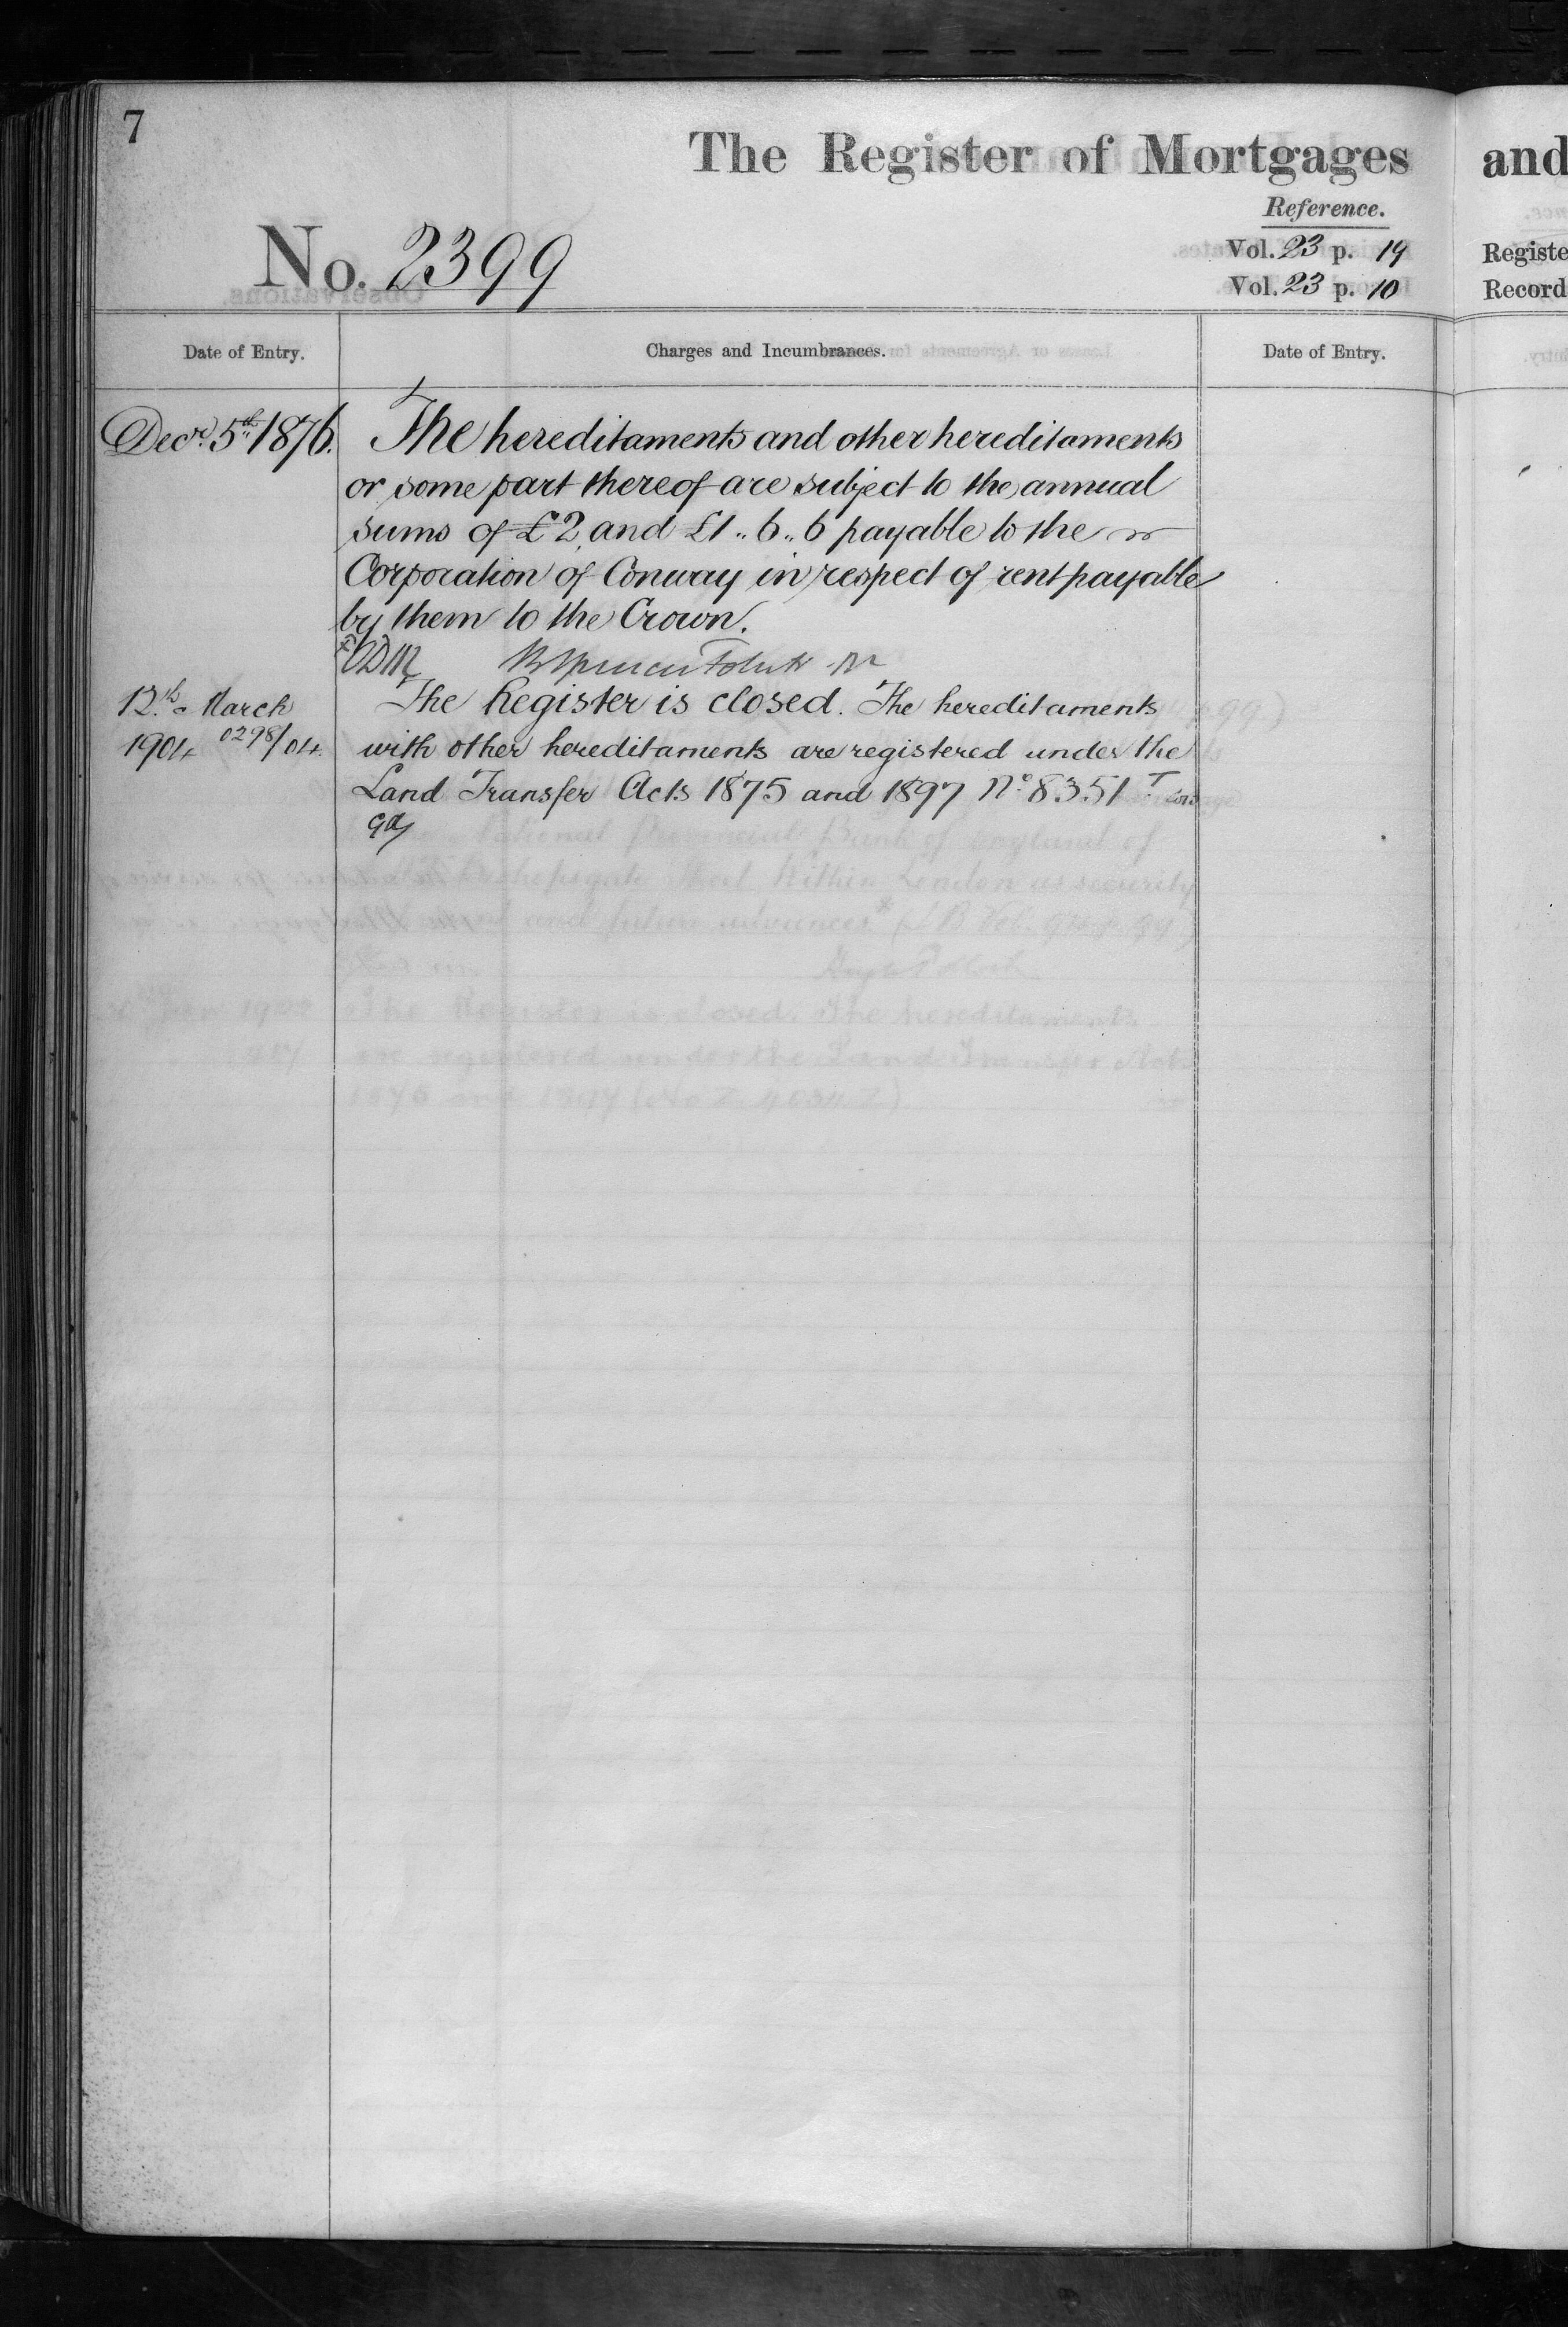 7
The Register of Mortgages and
Reference.
No. 2399
Vol. 23 p. 19 Registe
Vol. 23 p. 10 Record
Date of Entry. Charges and Incumbrances. Date of Entry.
Decr. 5th 1876. The hereditaments and other hereditaments
or some part thereof are subject to the annual
sums of £2, and £1.. 6.. 6 payable to the
Corporation of Conway in respect of rent payable
by them to the Crown.
12th March The Register is closed. The hereditaments
1904 0298/04. with other hereditaments are registered under the
Land Transfer Acts 1875 and 1897 No. 8351 T